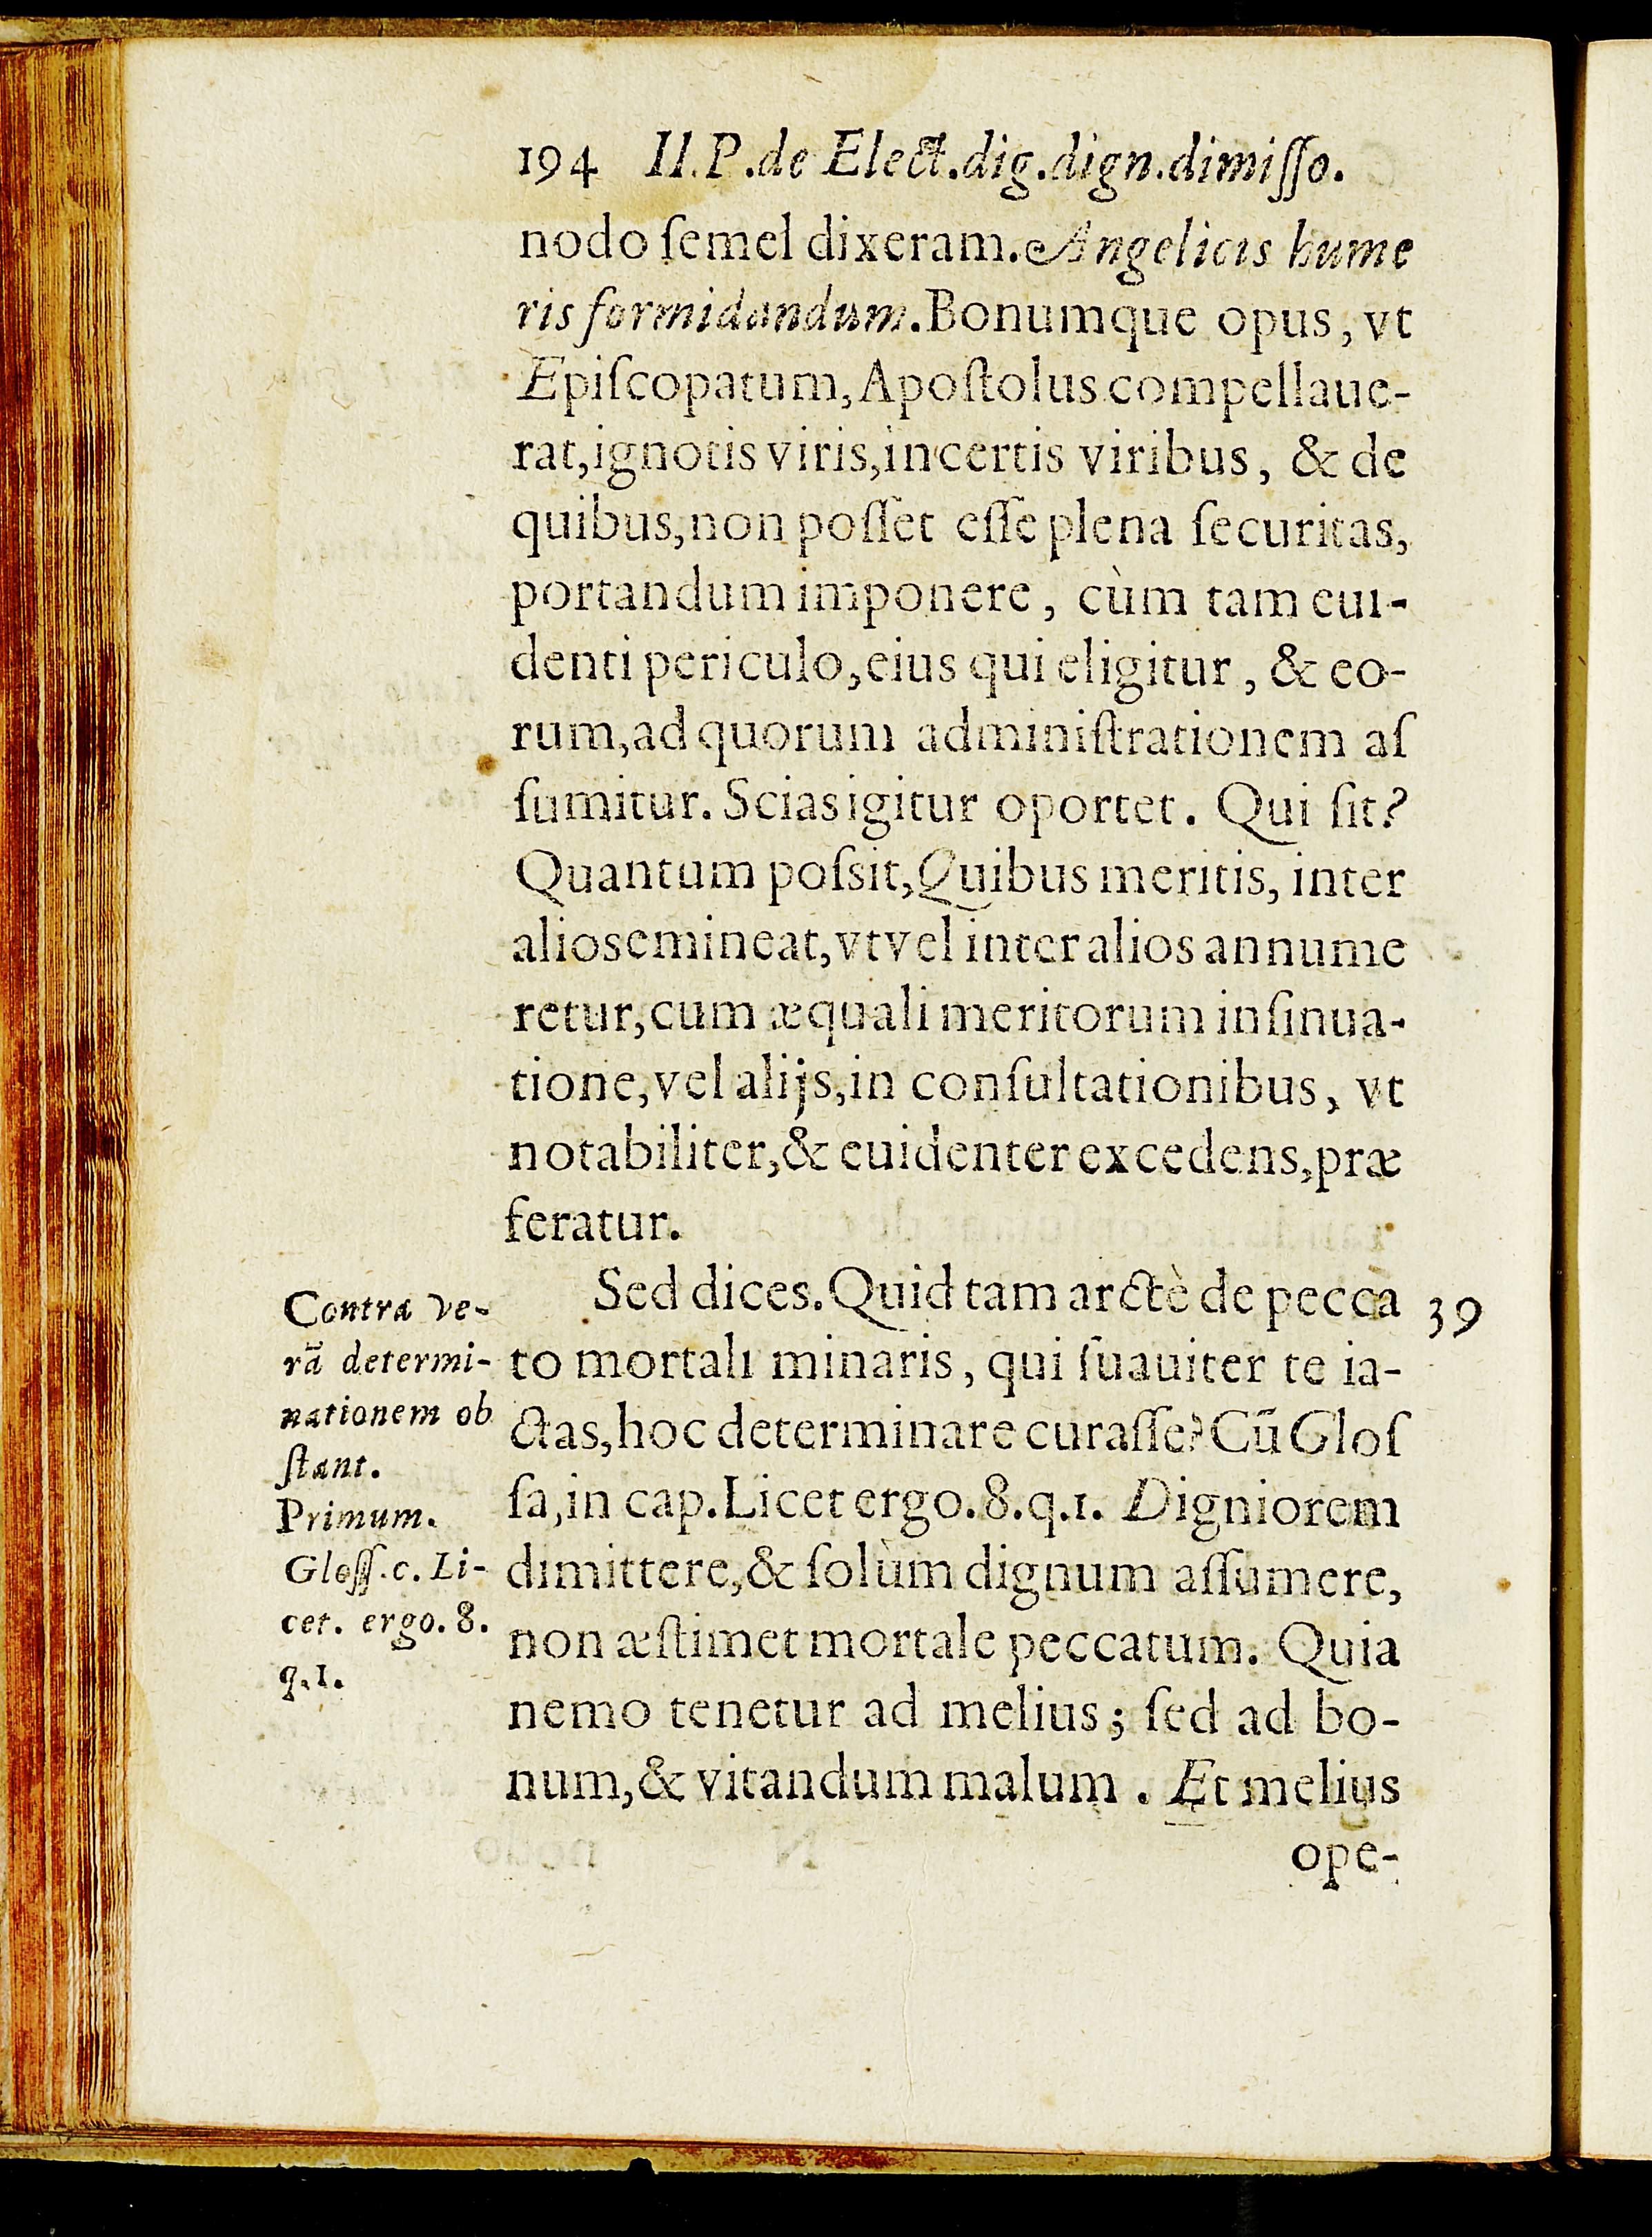 194 II.P.de Elect.dig.dign.dimiſſo.
nodo ſemel dixeram.Angelicis hume
ris formidandum.Bonumque opus, vt
Epiſcopatum, Apoſtolus compellaue-
rat,ignotis viris,incertis viribus, & de
quibus,non poſſet eſſe plena ſecuritas,
portandum imponere, cùm tam eui-
denti periculo,eius qui eligitur, & eo-
rum,ad quorum adminiſtrationem aſ
ſumitur. Scias igitur oportet. Qui ſit?
Quantum poſsit,Quibus meritis, inter
alios emineat,vt vel inter alios annume
retur,cum æquali meritorum inſinua-
tione,vel alijs,in conſultationibus, vt
notabiliter,& euidenter excedens,præ
feratur.
Sed dices.Quid tam arctè de pecca
to mortali minaris, qui ſuauiter te ia-
ctas,hoc determinare curaſſe? Cū Gloſ
ſa,in cap.Licet ergo.8.q.1. Digniorem
dimittere,& ſolùm dignum aſſumere,
non æſtimet mortale peccatum. Quia
nemo tenetur ad melius; ſed ad bo-
num,& vitandum malum. Et melius
ope-
Contra ve-
rā determi-
nationem ob
ſtant.
Primum.
Gloſſ.c. Li-
cet. ergo. 8.
q.1.
39